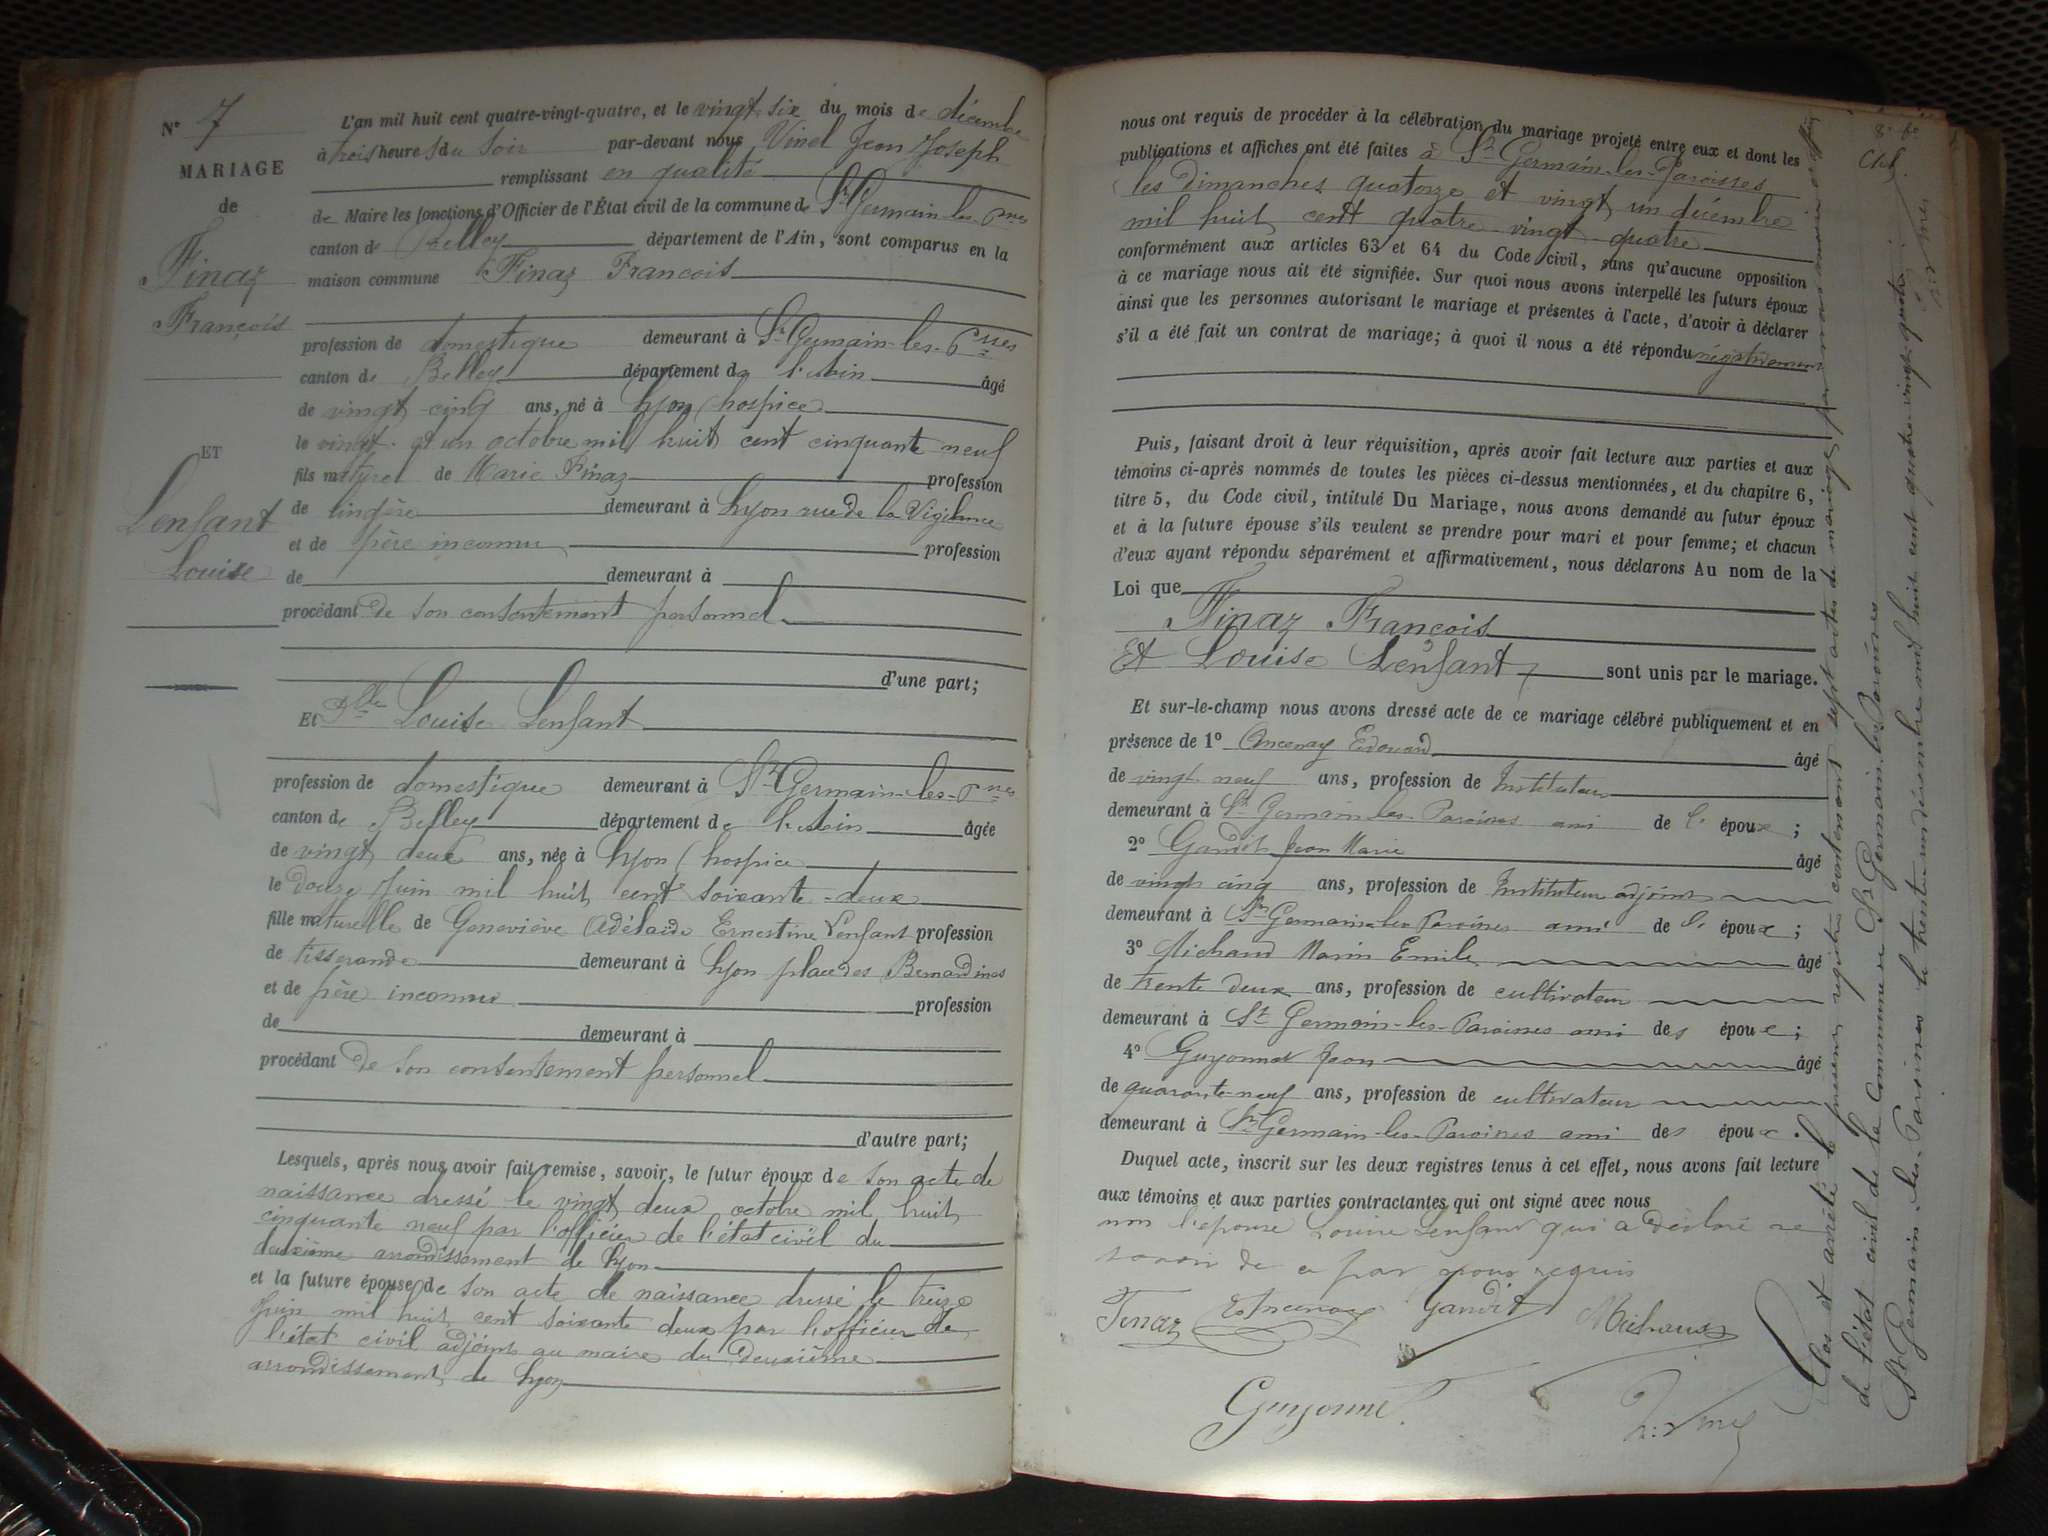 N° 7
MARIAGE
de
Finaz
François
ET
Lenfant
Louise
L'an mil huit cent quatre-vingt-quatre, et le vingt six du mois de décembre
à trois heures du soir par-devant nous Vinel Jean Joseph
remplissant en qualité
de Maire les fonctions d'Officier de l'État civil de la commune de St Germain-les-Pses
canton de Belley département de l'Ain, sont comparus en la
maison commune Finaz François
profession de domestique demeurant à St Germain-les-Psses
canton de Belley département de l'Ain âgé
de vingt-cinq ans, né à Lyon (hospice)
le vingt-et un octobre mil huit cent cinquante neuf
fils naturel de Marie Finaz profession
de lingère demeurant à Lyon rue de la Vigilance
et de père inconnu profession
de demeurant à
procédant de son consentement personnel
d'une part;
Et Dlle Louise Lenfant
profession de domestique demeurant à St Germain-les-Pses
canton de Belley département de l'Ain âgée
de vingt deux ans, née à Lyon (hospice)
le douze Juin mil huit cent soixante-deux
fille naturelle de Geneviève Adélaïde Ernestine Lenfant profession
de tisserande demeurant à Lyon place des Bernardines
et de père inconnu profession
de demeurant à
procédant de son consentement personnel
d'autre part;
Lesquels, après nous avoir fait remise, savoir, le futur époux de son acte de
naissance dressé le vingt deux octobre mil huit
cinquante neuf par l'officier de l'état civil du
deuxième arrondissement de Lyon
et la future épouse de son acte de naissance dressé le treize
Juin mil huit cent soixante deux par l'officier de
l'état civil adjoint au maire du deuxième
arrondissement de Lyon
nous ont requis de procéder à la célébration du mariage projeté entre eux et dont les
publications et affiches ont été faites à St Germain-les-Paroisses
les dimanches quatorze et vingt un décembre
mil huit cent quatre vingt quatre
conformément aux articles 63 et 64 du Code civil, sans qu'aucune opposition
à ce mariage nous ait été signifiée. Sur quoi nous avons interpellé les futurs époux
ainsi que les personnes autorisant le mariage et présentes à l'acte, d'avoir à déclarer
s'il a été fait un contrat de mariage; à quoi il nous a été répondu négativement
Puis, faisant droit à leur réquisition, après avoir fait lecture aux parties et aux
témoins ci-après nommés de toutes les pièces ci-dessus mentionnées, et du chapitre 6,
titre 5, du Code civil, intitulé Du Mariage, nous avons demandé au futur époux
et à la future épouse s'ils veulent se prendre pour mari et pour femme; et chacun
d'eux ayant répondu séparément et affirmativement, nous déclarons Au nom de la
Loi que
Finaz François
Et Louise Lenfant sont unis par le mariage.
Et sur-le-champ nous avons dressé acte de ce mariage célébré publiquement et en
présence de 1° Ancenay Edouard âgé
de vingt neuf ans, profession de Instituteur
demeurant à St Germain-les-Paroisses ami de l' époux;
2° Gandit Jean Marie âgé
de vingt cinq ans, profession de Instituteur adjoint
demeurant à St Germain-les-Paroisses ami de l' époux;
3° Michaud Marin Emile âgé
de trente deux ans, profession de cultivateur
demeurant à St Germain-les-Paroisses ami des époux;
4° Guyonnet Jean âgé
de quarante-neuf ans, profession de cultivateur
demeurant à St Germain-les-Paroisses ami des époux.
Duquel acte, inscrit sur les deux registres tenus à cet effet, nous avons fait lecture
aux témoins et aux parties contractantes qui ont signé avec nous
non l'épouse Louise Lenfant qui a déclaré ne
savoir de ce par nous requis
Finaz Ancenay Gandit Michaud
Guyonnet
Vinel
Clos et arrêté le présent registre contenant sept actes de mariage par nous maire officier
de l'état civil de la commune de St Germain-les-Paroisses
St Germain-les-Paroisses le trente un décembre mil huit cent quatre vingt quatre